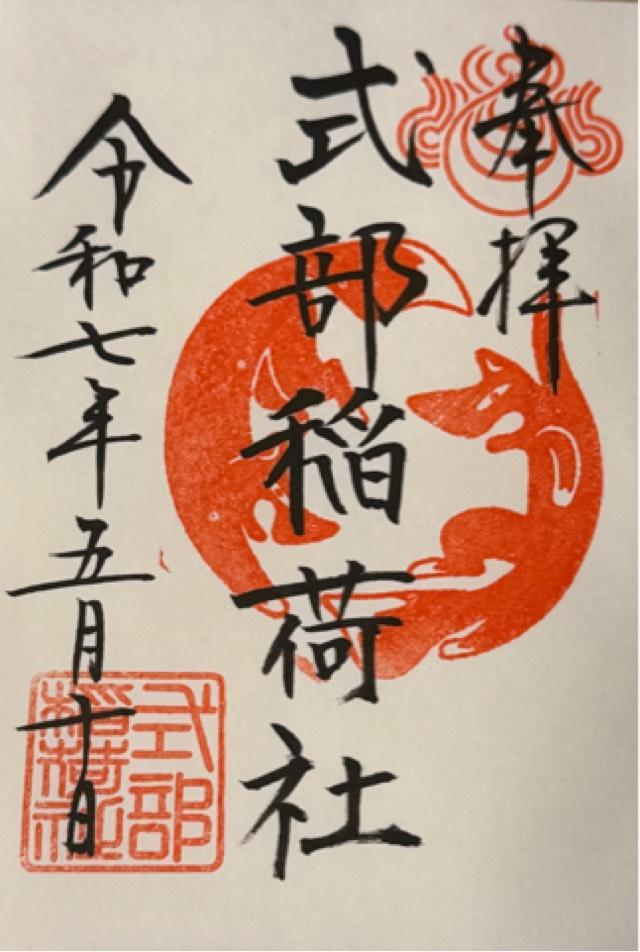 奉拝
式部稲荷社
令和七年五月十日
式部
稲荷社